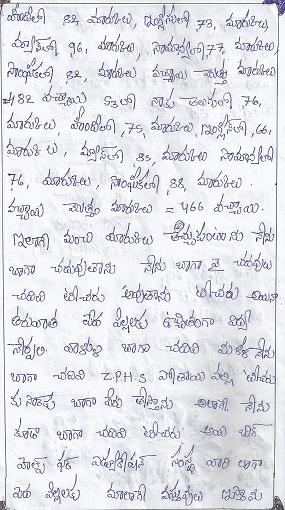 హిందీలో 82, మారుకులు, ఇంగ్లీషులో 73, మారుకులు,
మ్యాథ్స్‌లో 96, మారుకులు, సామాన్యలో 77, మారుకులు,
సాంఘీకలో 82, మారుకులు వచ్చాయి మొత్తం మారుకులు
482 వచ్చాయి నాకు తెలుగులో 76,
మారుకులు, హిందీలో, 75, మారుకులు, ఇంగ్లీష్‌లో, 66,
మారుకులు, మ్యాథ్స్‌లో 85, మారుకులు సామాన్యలో
76, మారుకులు, సాంఘీకలో, 88, మారుకులు.
వచ్చాయి మొత్తం మారుకులు = 466 వచ్చాయి.
ఇలాగే మంచి మారుకులు తెచ్చుకుంటాను నేను
బాగా చదువుతాను నేను బాగా పై చదువులు
చదివి టీచరు అవుతాను టీచరు అయిన
తరువాత పేద పిల్లలకు ఉచితంగా విద్య
నేర్పుతా బాగా చదివి నేను
బాగా చదివి Z.P.H.S టీచరు
బాగా పేరు తెస్తాను అలాగే నేను
కూడా బాగా చదివి టీచరు అయి
సంస్థ వారి లాగా
పేద పిల్లలకు మాలాగే వస్తువులు